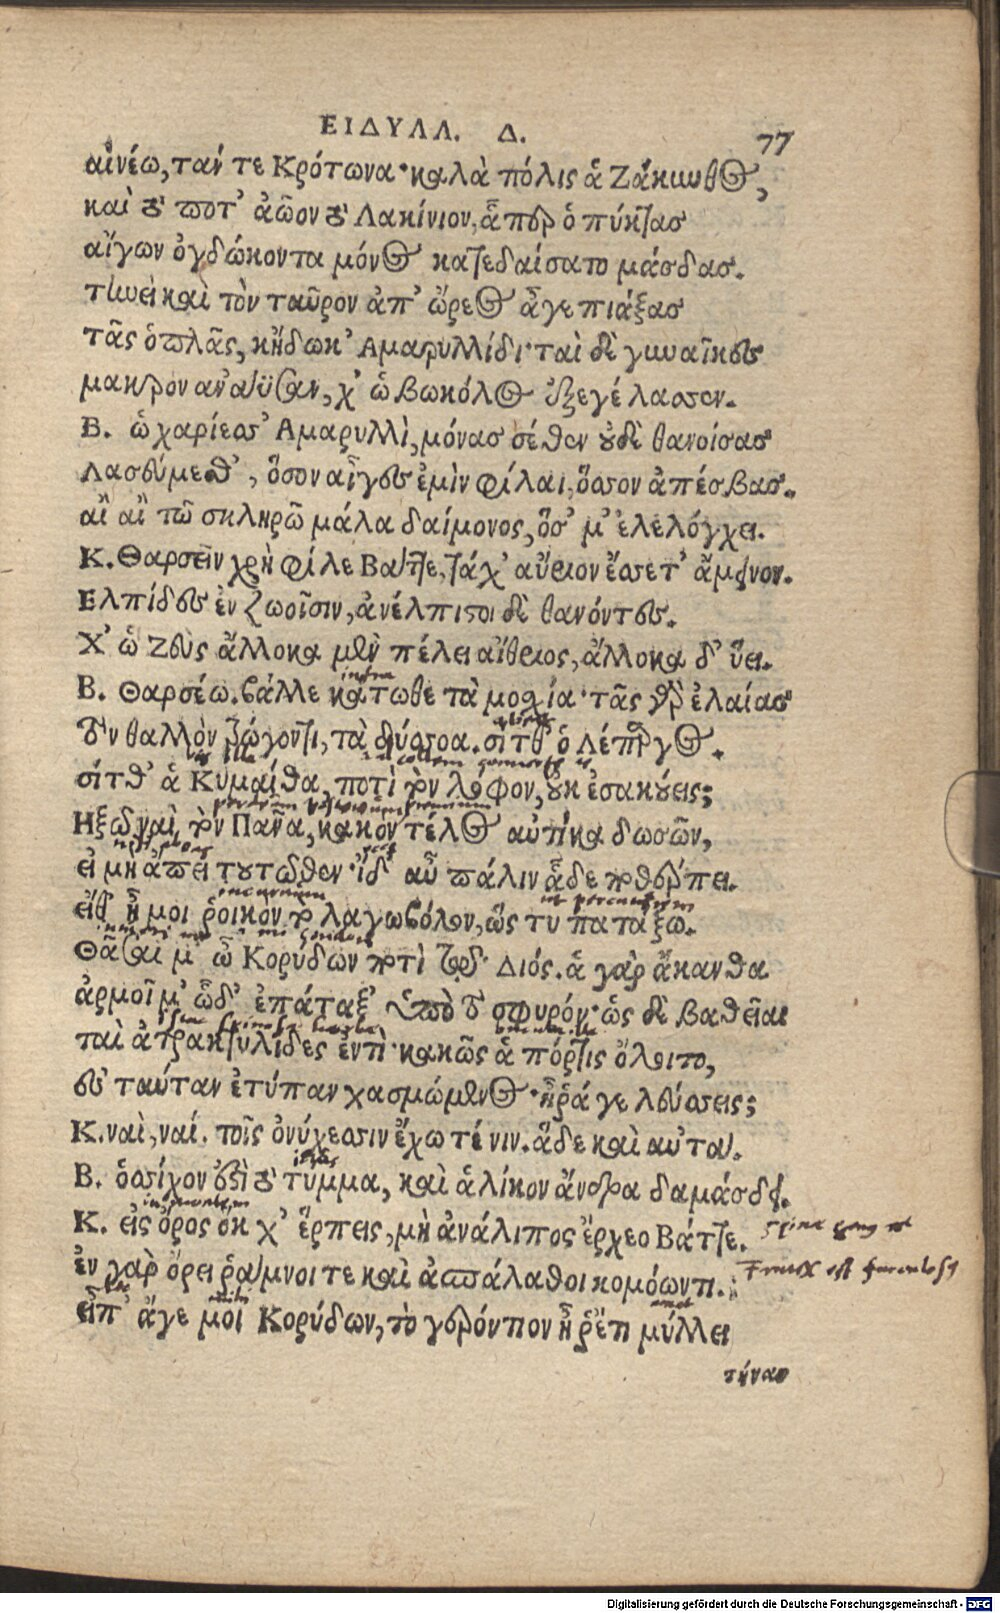 ΕΙΔΥΛΛ. Δ. 77
αἰνέω, τάν τε Κρότωνα· καλὰ πόλις ἅ Ζάκυνθος,
καὶ τὸ ποτ' ἀῶον τὸ Λακίνιον, ᾇπερ ὁ πύκτας
αἴγων ὀγδώκοντα μόνος κατεδαίσατο μάσδας.
τηνεὶ καὶ τὸν ταῦρον ἀπ' ὤρεος ἆγε πιάξας
τᾶς ὁπλᾶς, κἤδωκ' Ἀμαρυλλίδι· ταὶ δὲ γυναῖκες
μακρὸν ἀνάϋσαν, χ' ὡ βωκόλος ἐξεγέλασεν.
Β. ὦ χαρίεσσ' Ἀμαρυλλὶ, μόνας σέθεν οὐδὲ θανοίσας
Λασεύμεθ', ὅσον αἶγες ἐμὶν φίλαι, ὅσσον ἀπέσβας.
αἲ αἲ τῶ σκληρῶ μάλα δαίμονος, ὅς μ' ἐλελόγχει.
Κ. Θαρσεῖν χρὴ φίλε Βάττε, τάχ' αὔριον ἔσετ' ἄμεινον.
Ελπίδες ἐν ζωοῖσιν, ἀνέλπιστοι δὲ θανόντες.
Χ' ὡ Ζεὺς ἄλλοκα μὲν πέλει αἴθριος, ἄλλοκα δ' ὕει.
infra
Β. Θαρσέω. βάλλε κάτωθε τὰ μοσχία· τᾶς γὰρ ἐλαίας
τὸν θαλλὸν τρώγοντι, τὰ δύσσοα. σίτθ' ὁ Λέπαργος.
σίτθ' ἁ Κυμαίθα, ποτὶ τὸν λόφον, οὐκ ἐσακούεις;
Ηξῶ ναὶ τὸν Πᾶνα, κακὸν τέλος αὐτίκα δωσῶν,
εἰ μὴ ἄπει τουτῶθεν· ἴδ' αὖ πάλιν ᾇδε ποθέρπει.
εἴθ' ἦ μοι ῥοικὸν τὸ λαγωβόλον, ὥς τυ πατάξω.
Θᾶσαί μ' ὦ Κορύδων ποττὶ τῶ Διός. ἁ γὰρ ἄκανθα
ἁρμοῖ μ' ὧδ' ἐπάταξ' ὑπὸ τὸ σφυρόν· ὡς δὲ βαθεῖαι
ταὶ ἀτρακτυλίδες ἐντί· κακῶς ἁ πόρτις ὄλοιτο,
ἐς ταύταν ἐτύπαν χασμώμενος· ἦ ῥά γε λεύσσεις;
Κ. ναὶ, ναί. τοῖς ὀνύχεσσιν ἔχω τέ νιν. ἅδε καὶ αὐτά.
Β. ὁσσίχον ἐστὶ τὸ τύμμα, καὶ ἁλίκον ἄνδρα δαμάσδει.
Κ. εἰς ὄρος ὅκ χ' ἕρπεις, μὴ ἀνάλιπος ἔρχεο Βάττε.
ἐν γὰρ ὄρει ῥάμνοι τε καὶ ἀσπάλαθοι κομόωντι.
Εἴπ' ἄγε μοι Κορύδων, τὸ γερόντιον ἦ ῥ' ἔτι μύλλει
τήναν
Digitalisierung gefördert durch die Deutsche Forschungsgemeinschaft - DFG